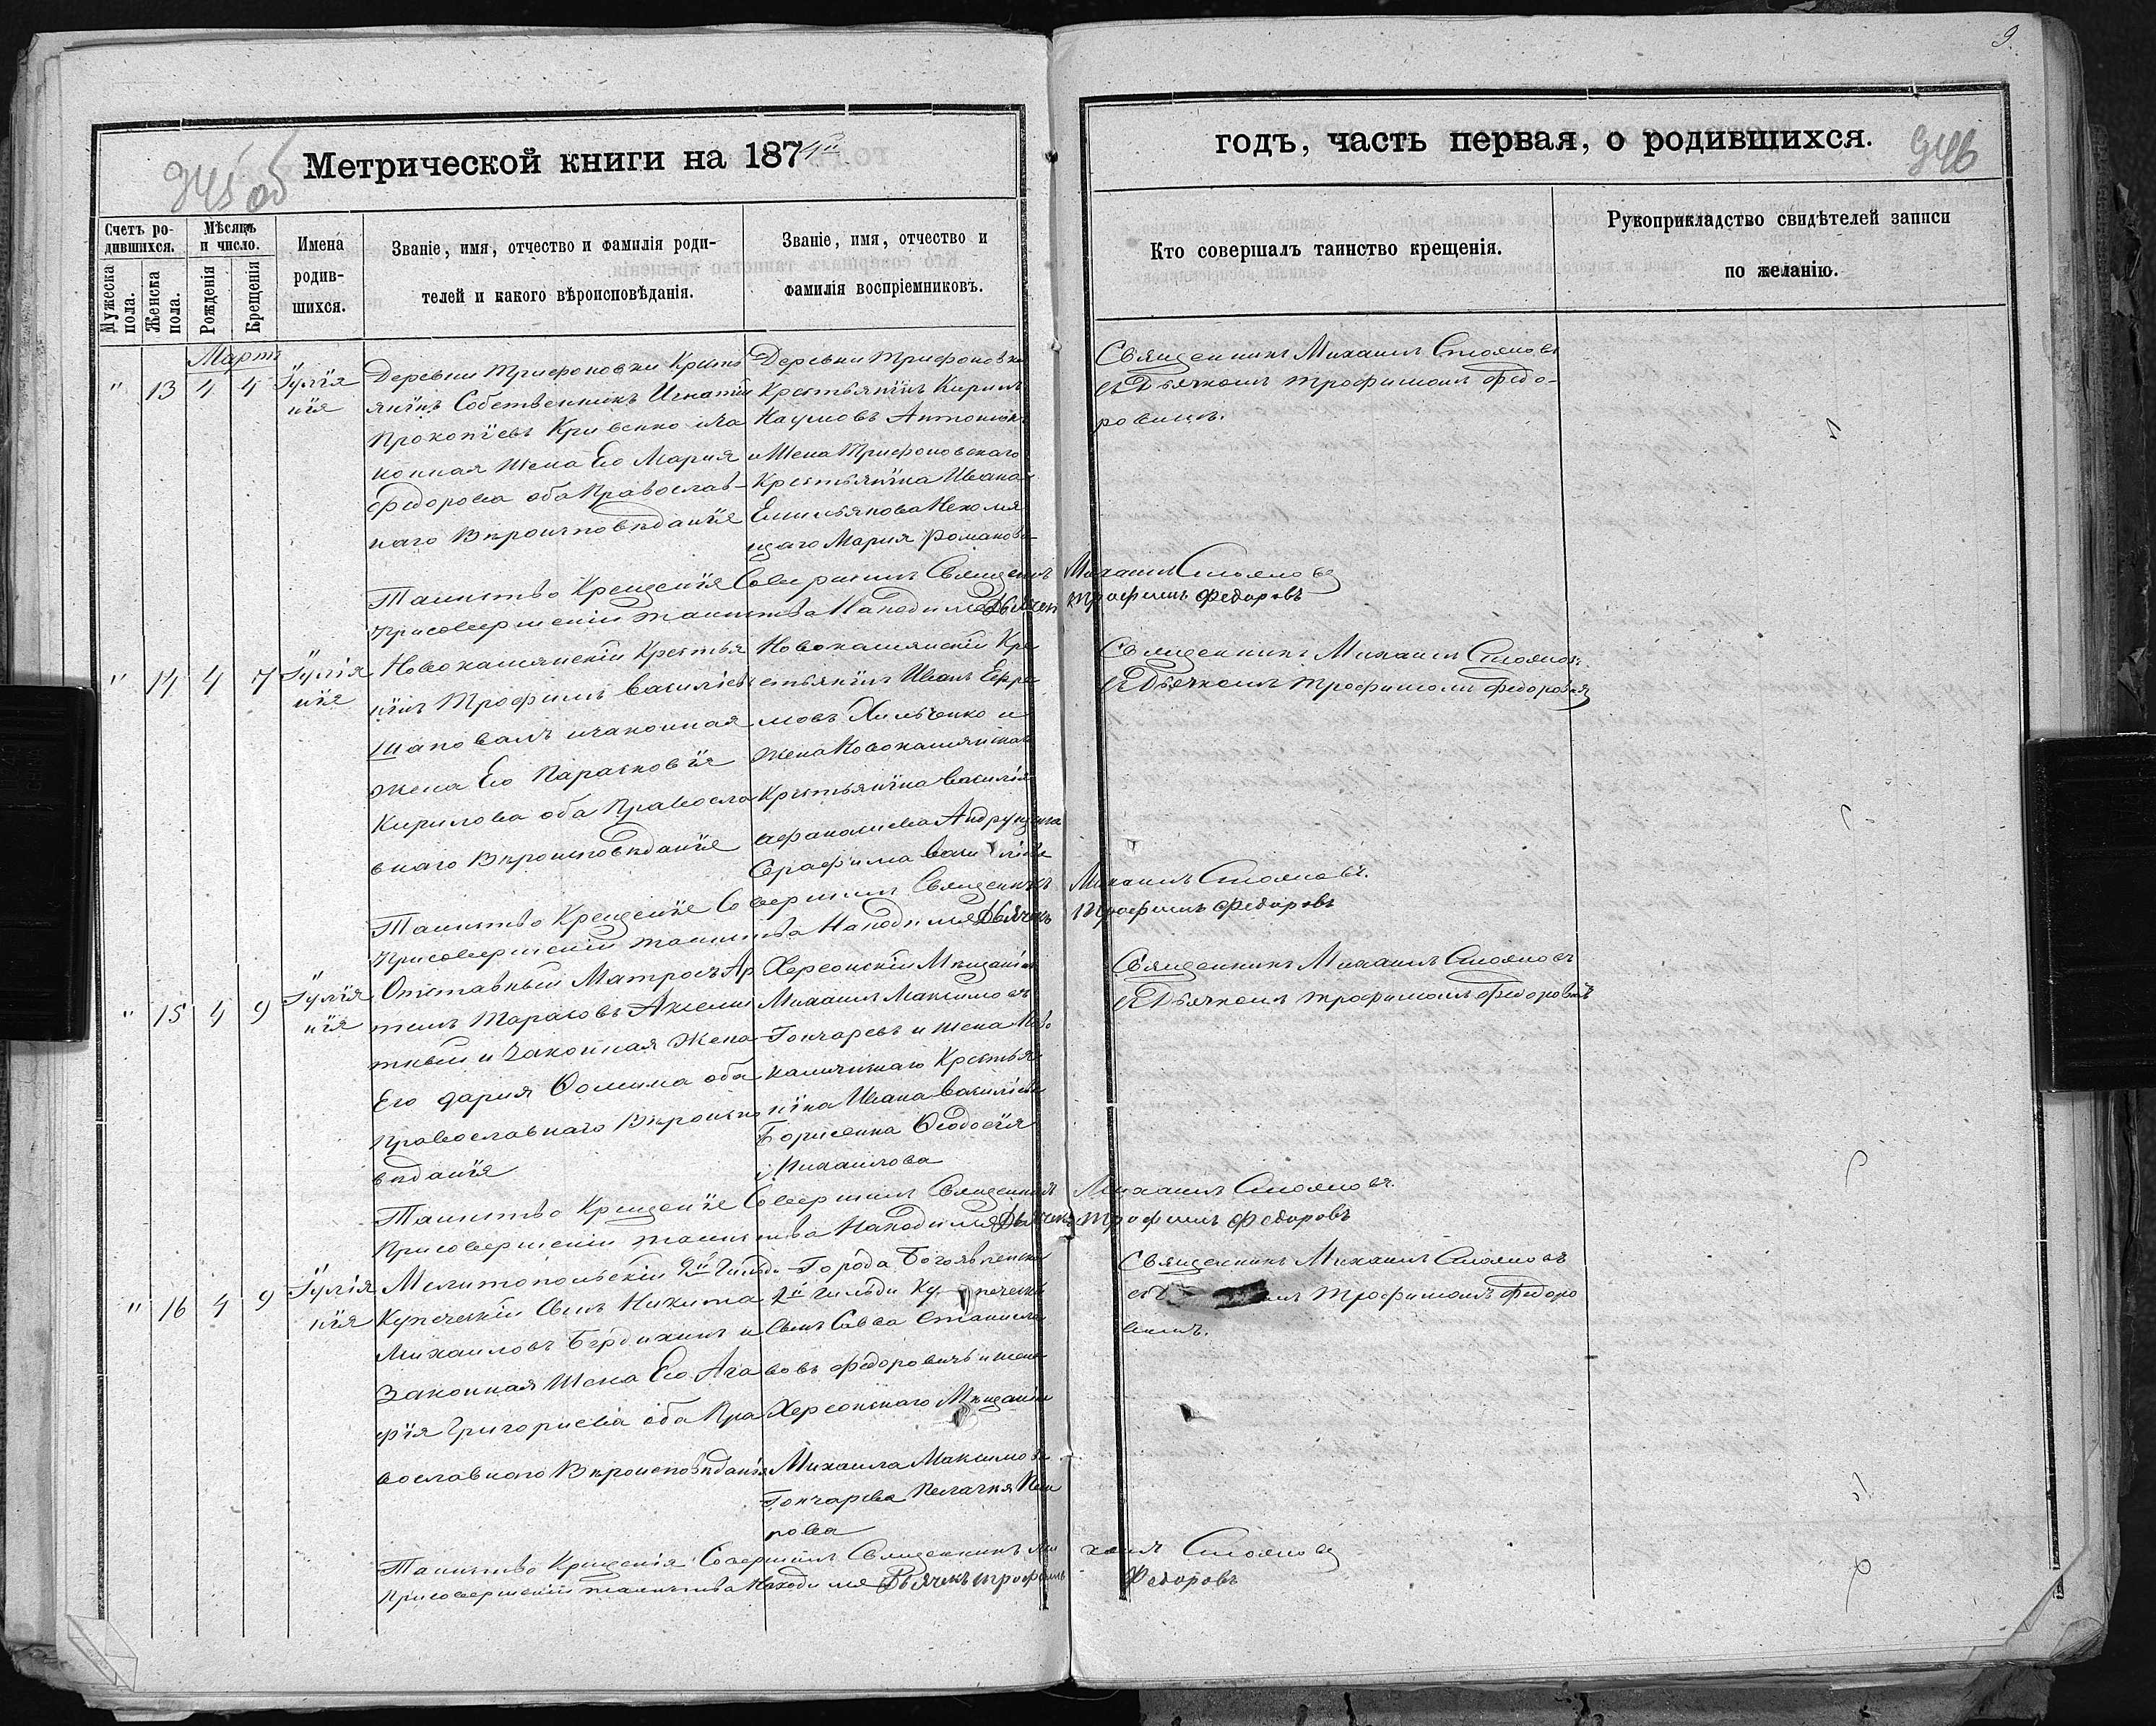 9.
945 об
Метрической книги на 1874й
годъ, часть первая, о родившихся.
946
Счетъ ро-
дившихся.
Мѣсяцъ
и число.
Мужеска
пола.
Женска
пола.
Рожденія
Крещенія
Имена
родив-
шихся.
Званіе, имя, отчество и фамилія роди-
телей и какого вѣроисповѣданія.
Званіе, имя, отчество и
фамилія воспріемниковъ.
Кто совершалъ таинство крещенія.
Рукоприкладство свидѣтелей записи
по желанію.
Мартъ
" 13 4 4
Іулія
нія
Деревни Трифоновки Кресть
янинъ Собственникъ Игнатій
Прокопіевъ Кривенко иза
конная Жена Его Мария
Федорова оба Православ-
наго Вѣроисповѣданія
Деревни Трифоновки
Крестьянинъ Кирилъ
Наумовъ Антонюкъ
и Жена Трифоновскаго
Крестьянина Ивана
Емильянова
Мария Романова
Священникъ Михаилъ Стояновъ
съ Дьячкомъ Трофимомъ Федо-
ровимъ.
Таинство Крещенія Совершилъ Священикъ Михаилъ Стояновъ
Присовершеніи таинства Находился Дьячекъ Трофимъ Федоровъ
" 14 4 7
Іулія
нія
Новокамянскій Крестья
нинъ Трофимъ Василіевъ
Шаповалъ изаконная
жена Его Парасковія
Кирилова оба Правосла
внаго Вѣроисповѣданія
Новокамянскій Кре
стьянинъ Иванъ Ефре
мовъ Хильченко и
жена Новокамянскаго
Крестьянина Василія
Афанасиева Андрущенка
Серафима Василіева
Священникъ Михаилъ Стояновъ.
съ Дьячкомъ Трофимомъ Федоровимъ
Таинство Крещеніе Совершилъ Священикъ Михаилъ Стояновъ.
Присовершеніи таинства Находился Дьячекъ Трофимъ Федоровъ
" 15 4 9
Іулія
нія
Отставный Матросъ Ар
темъ Тарасовъ
и Законная Жена
Его Дария Фомина оба
Православнаго Вѣроиспо
вѣданія
Херсонскій Мещанинъ
Михаилъ Максимовъ
Гончаревъ и жена Ново
камянскаго Крестья
нина Ивана Василіева
Борисенка Феодосія
Михаилова
Священникъ Михаилъ Стояновъ
съ Дьячкомъ Трофимомъ Федоровимъ
Таинство Крещеніе Совершилъ Священикъ Михаилъ Стояновъ.
Присовершеніи таинства Находился Дьячекъ Трофимъ Федоровъ
" 16 4 9
Іулія
нія
Мелитопольскій 2й Гильди
Купеческій Сынъ Никита
Михаиловъ Бердихинъ и
Законная Жена Его Ага
фія Григориева оба Пра
вославнаго Вѣроисповѣданія
Города Богоявленска
2й Гильди Купеческій
Сынъ Савва Станисла
вовъ Федоровичъ и жена
Херсонскаго Мещанина
Михаила Максимова
Гончарева Пелагия Пет
рова
Священникъ Михаилъ Стояновъ
Трофимомъ Федоро
вимъ.
Таинство Крещенія Совершилъ Священникъ Михаилъ Стояновъ
Присовершеніи таинства Находился Дьячекъ Трофимъ Федоровъ